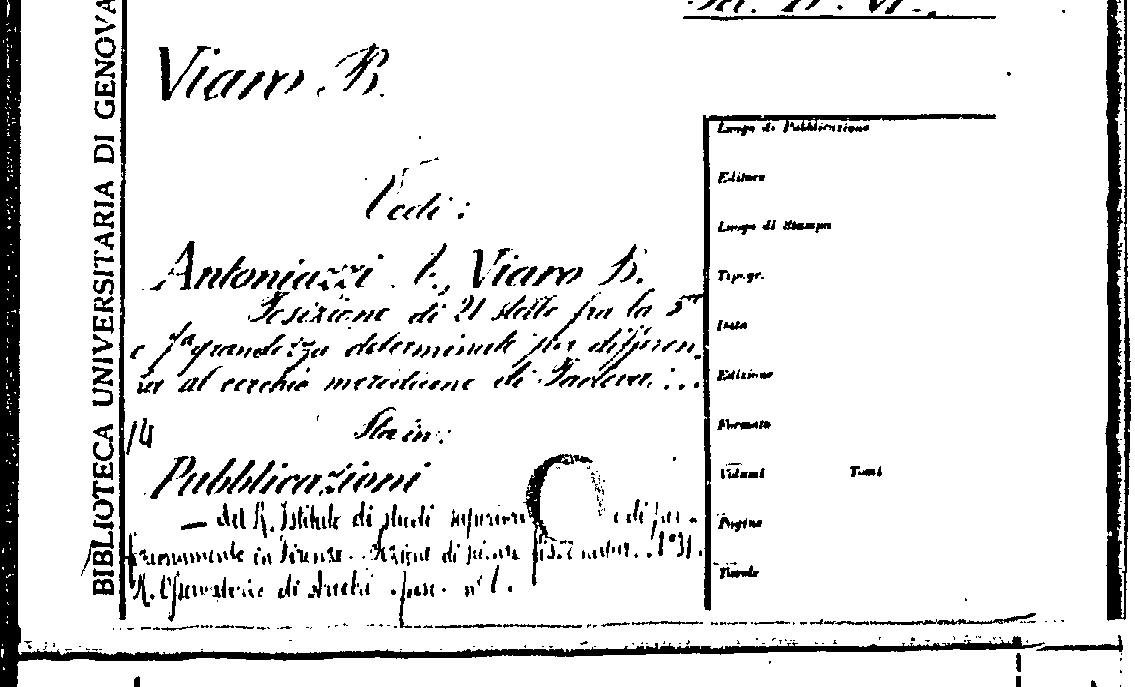 BIBLIOTECA UNIVERSITARIA DI GENOVA
Viaro B.
Vedi:
Antoniazzi A., Viaro B.
Posizione di 21 stelle fra la 5ª
e 7ª grandezza determinate per differen
za al cerchio meridiano di Padova...
14
Sta in:
Pubblicazioni
— del R. Istituto di studi superiori e di per-
fezionamento in Firenze. Sezione di scienze fisiche natur. N° 31.
R. Osservatorio di Arcetri. fasc. n° 1.
Luogo di Pubblicazione
Editore
Luogo di Stampa
Tipogr.
Data
Edizione
Formato
Volumi Tomi
Pagine
Tavole